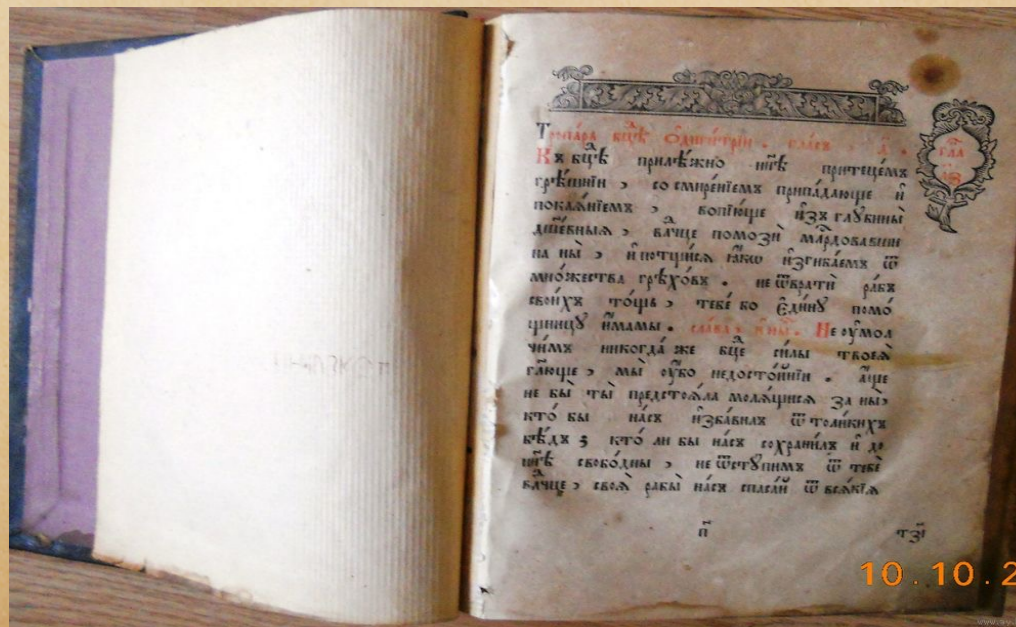 Тропа́ра бцⷣѣ Ѻ҆диги́трїи . гла́съ , д҃ .
гла
л҃з
Къ бцⷣѣ прилѣ́жно нн҃ѣ притеце́мъ
грѣ́шнїи , со смире́нїемъ припа́дающе и҆
покаѧ́нїемъ , вопїю́ще и҆зъ глꙋбины̀
дш҃е́вныѧ , влⷣчце помозѝ млⷭ҇рдовавши
на ны̀ , и҆ потщи́сѧ ꙗ҆́кѡ и҆згиба́емъ ѿ
мно́жества грѣхо́въ . не ѿвратѝ ра́бъ
свои́хъ то́щь , тебе́ бо є҆ди́нꙋ помо́
щницꙋ и҆́мамы . сла́ва , и҆ ны́нѣ . Не оу҆мол
чи́мъ никогда́ же бцⷣе си́лы твоеѧ̀
гл҃юще , мы̀ оу҆́бо недосто́йнїи . а҆́ще
не бы̀ ты̀ предстоѧ́ла молѧ́щисѧ за ны̀ ,
кто́ бы на́съ и҆зба́вилъ ѿ толи́кихъ
бѣ́дъ ; кто́ ли бы на́съ сохрани́лъ и҆ до
нн҃ѣ свобо́дны , не ѿстꙋ́пимъ ѿ тебѐ
влⷣчце , своѧ̀ рабы̀ на́съ спаса́й ѿ всѧ́кїѧ
п҃
тз҃і
10.10.2